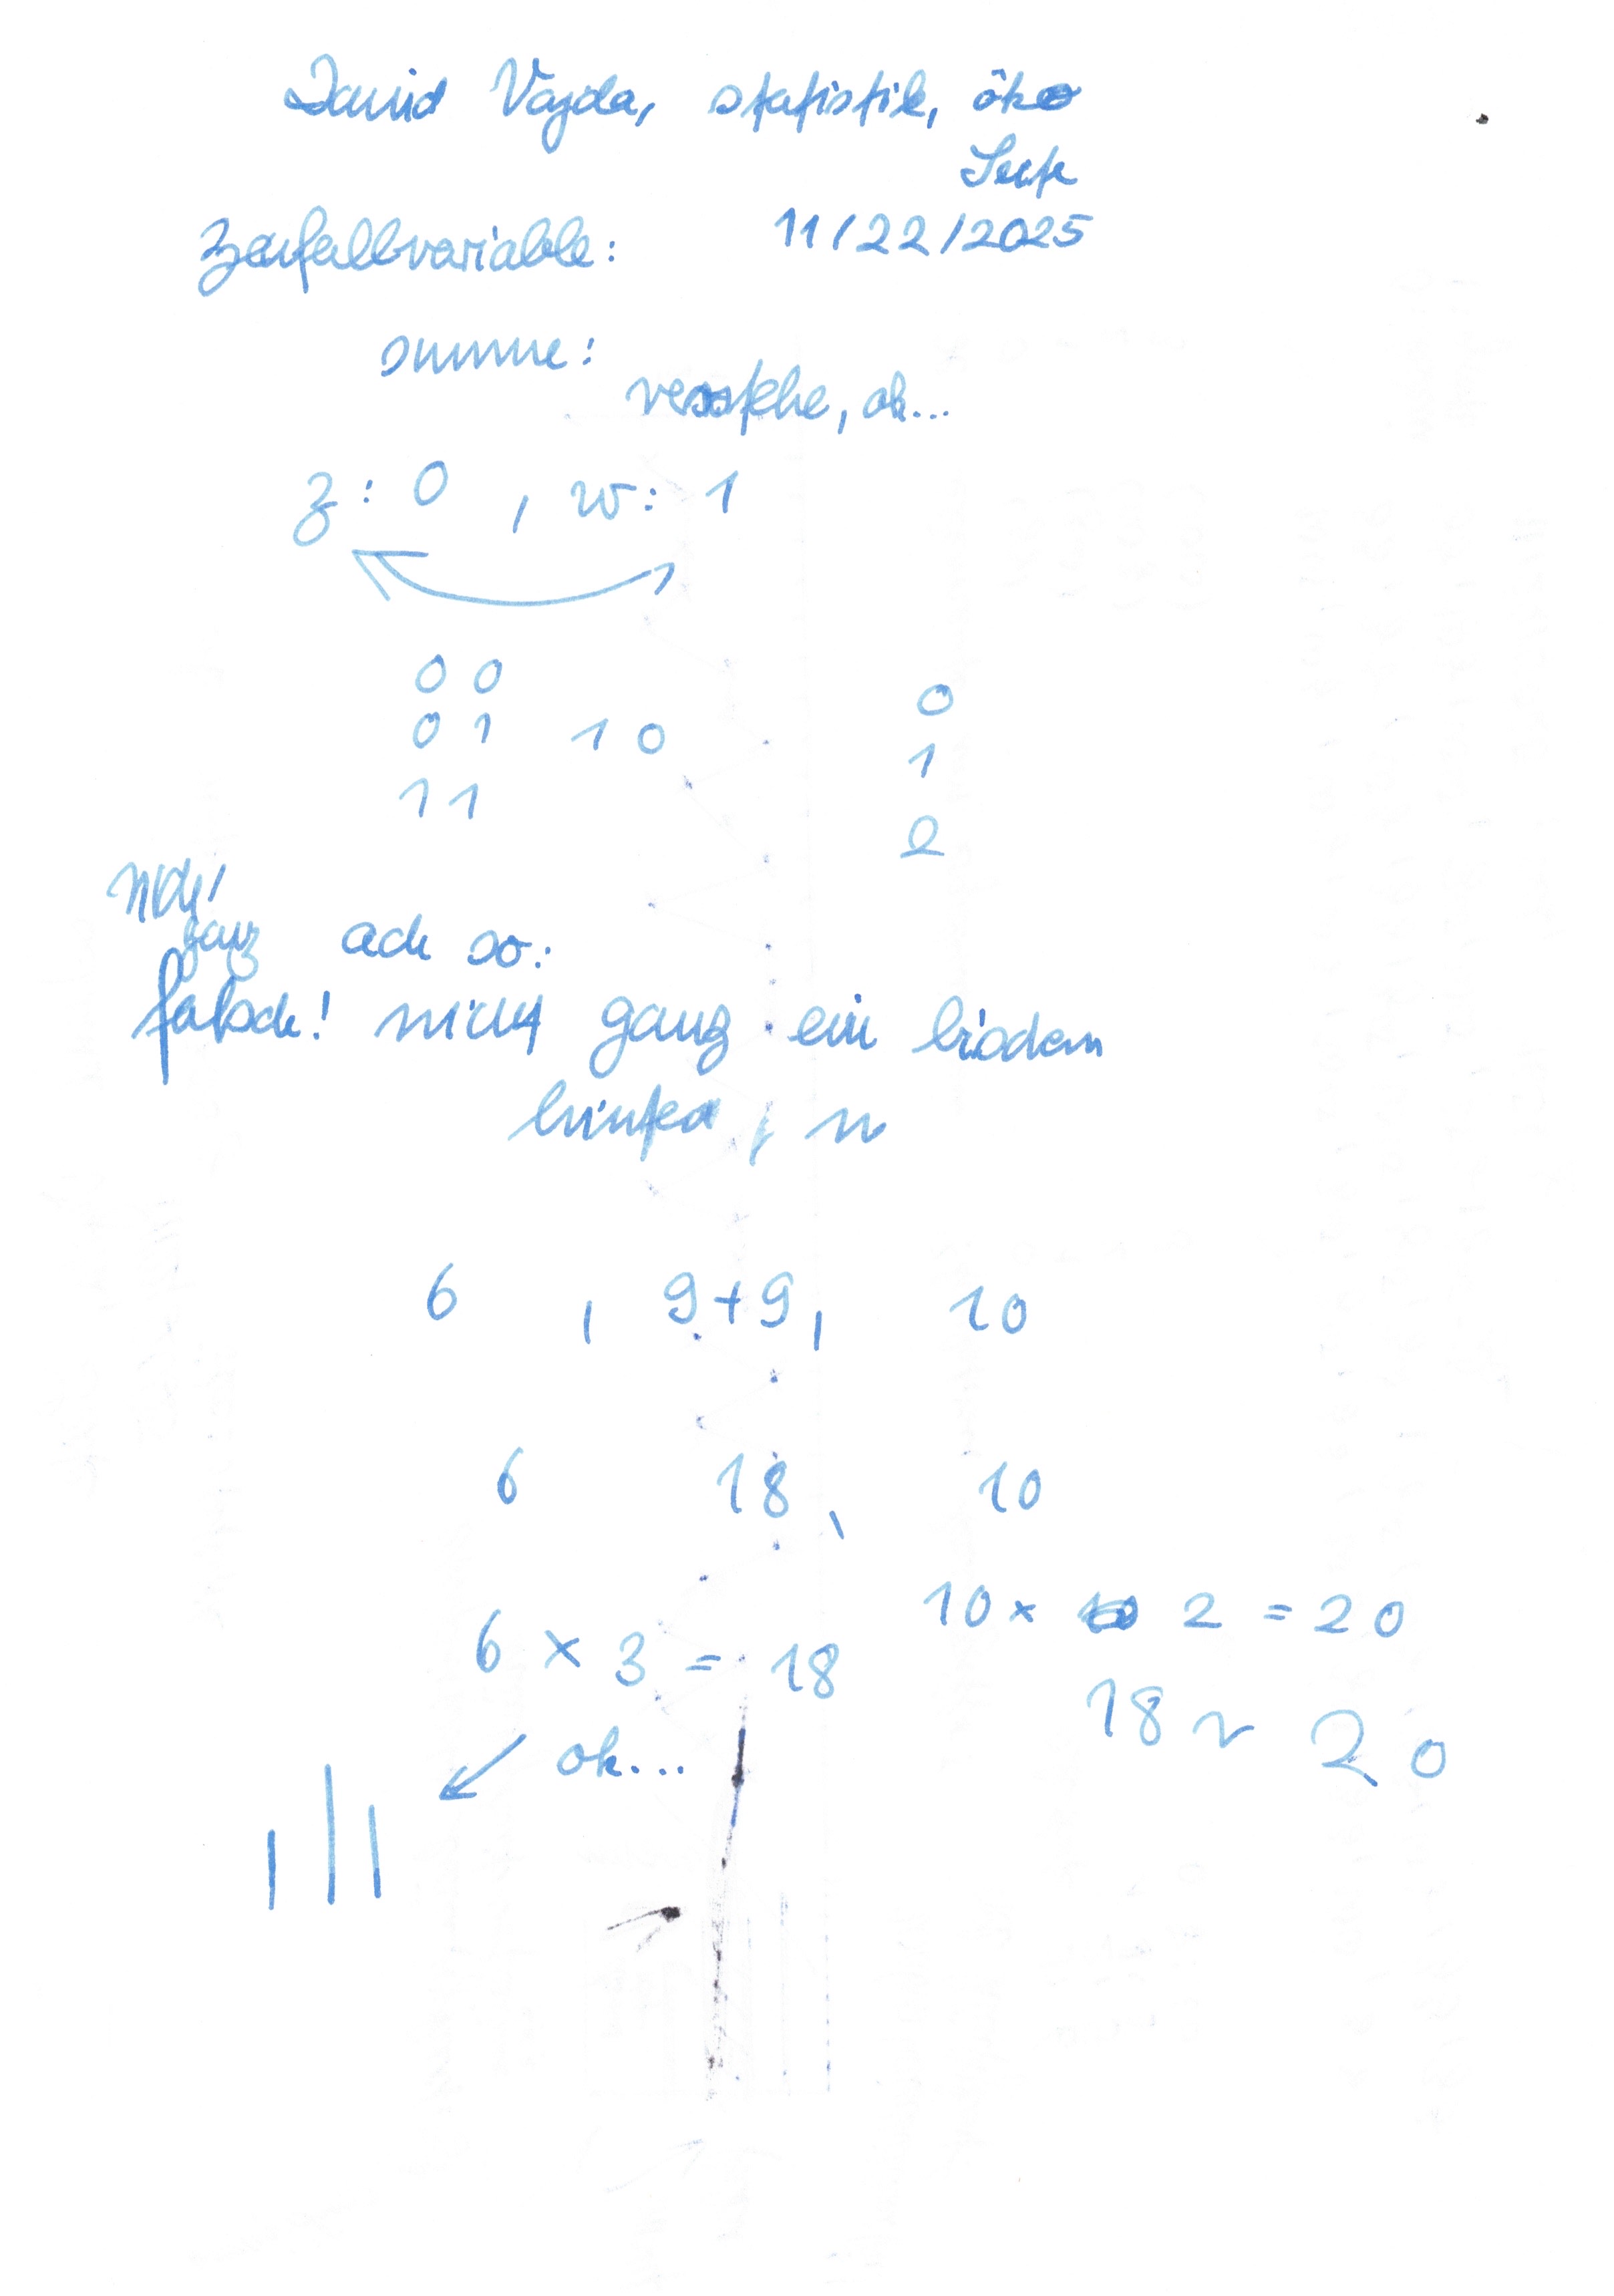 David Vajda, statistik, öko
Seite
Zufallsvariable: 11/22/2025
summe:
verstehe, ok...
z: 0 , w: 1
0 0
0
0 1 1 0
1
1 1
2
ganz ach so:
falsch! nicht ganz ein bischen
, n
6 , 9+9, 10
6 18, 10
10 × 2 = 20
6 × 3 = 18
18 ~ 20
ok...